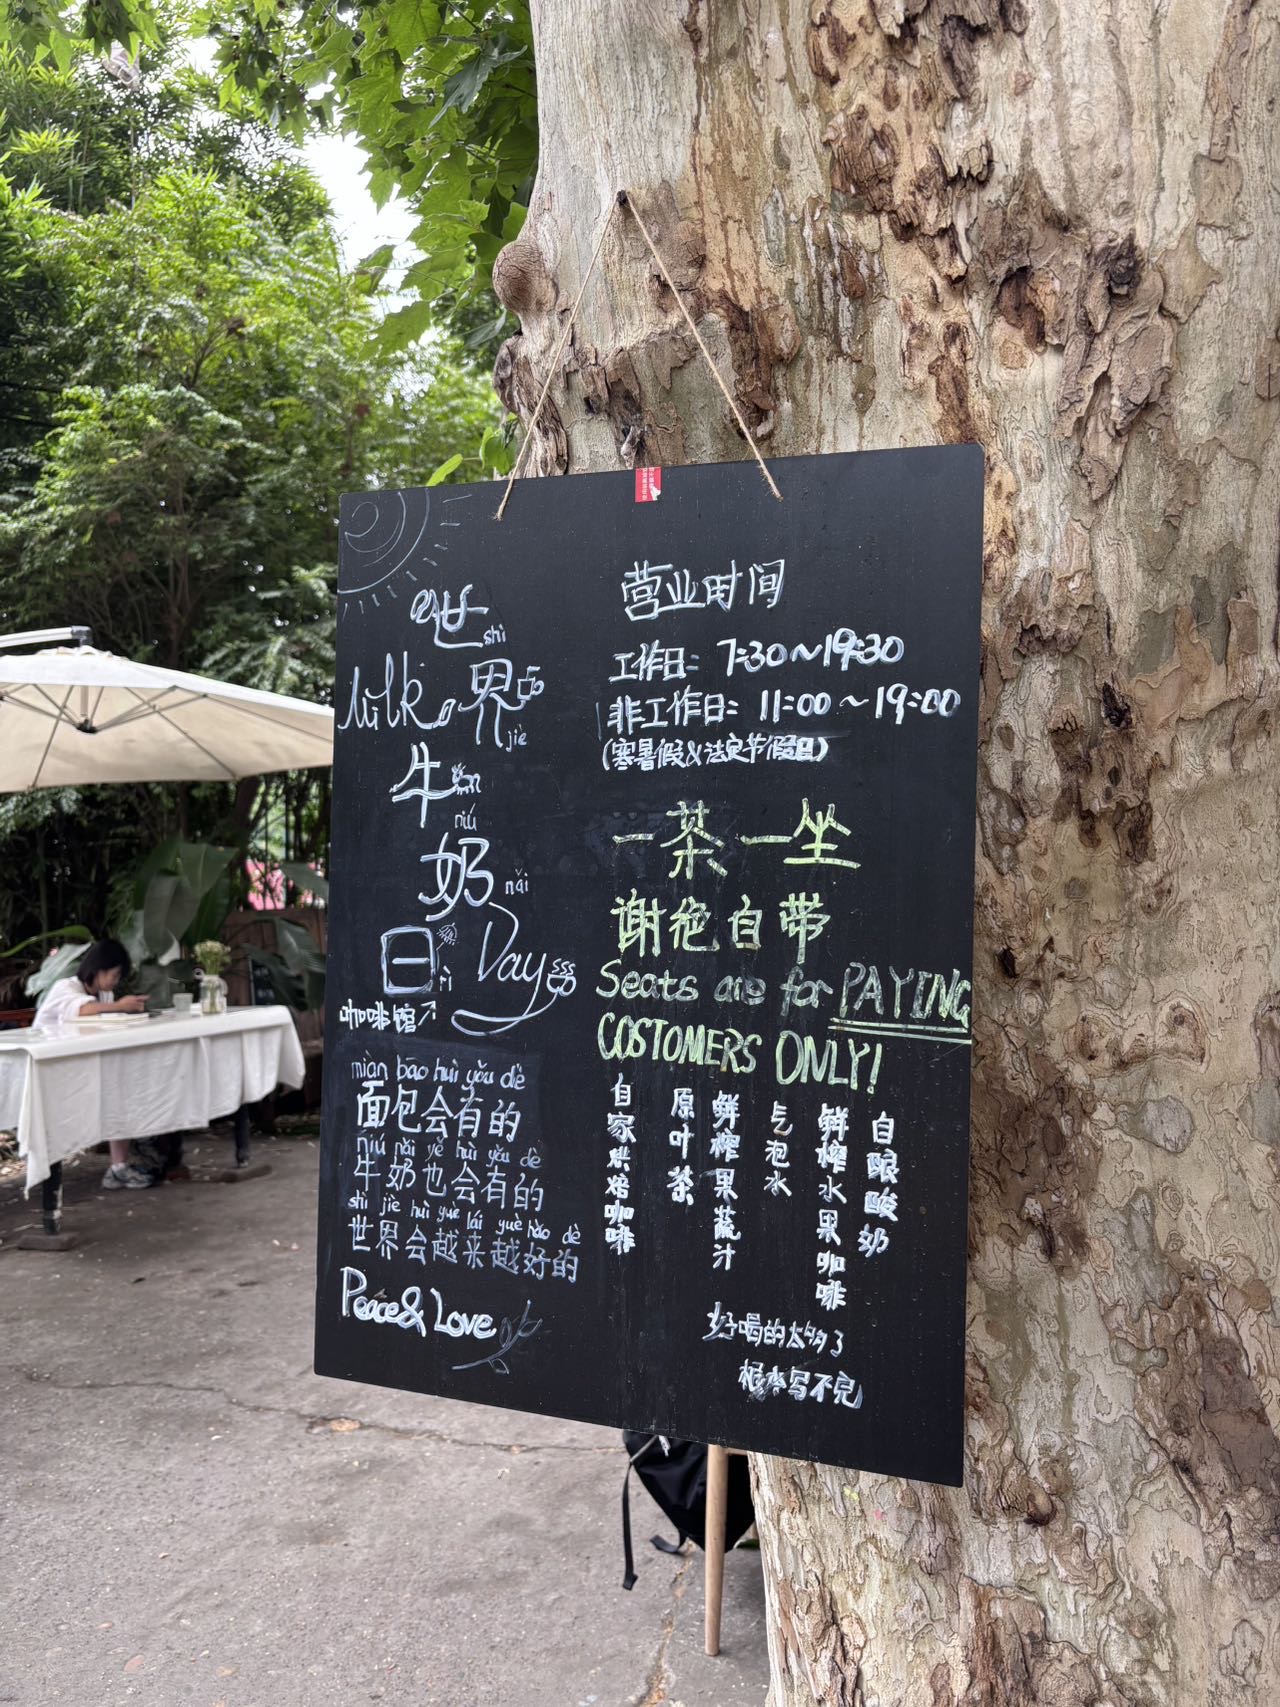 世 shì
Milk 界 jiè
牛 niú
奶 nǎi
日 rì Day
咖啡馆↗
miàn bāo huì yǒu dè
面包会有的
niú nǎi yě huì yǒu dè
牛奶也会有的
shì jiè huì yuè lái yuè hǎo dè
世界会越来越好的
Peace & Love
营业时间
工作日: 7:30~19:30
非工作日: 11:00~19:00
(寒暑假&法定节假日)
一茶一坐
谢绝自带
Seats are for PAYING
COSTOMERS ONLY!
自家烘焙咖啡
原叶茶
鲜榨果蔬汁
气泡水
鲜榨水果咖啡
自酿酸奶
好喝的太多了
根本写不完